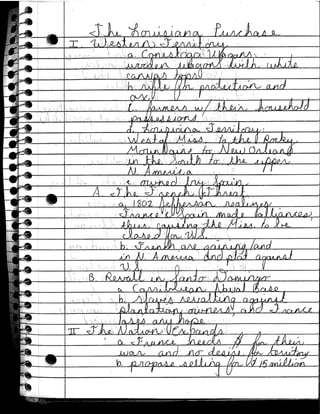 The Louisiana Purchase
I. Western Territory
a. Conestoga Wagons:
wooden wagons with white
canvas tops
b. rifle for protection and
ax
c. farmers w/ their household
possessions
d. Louisiana Territory:
West of Miss. to the Rocky
Mountains to New Orleans
in the South to the upper
N. America
e. owned by Spain
A. The French Threat
a. 1802 Jefferson realizes
France & Spain made alliances,
thus causing the Miss. to be
closed for U.S.
b. French are gaining land
in N. America and plot against
U.S.
B. Revolt in Santo Domingo
a. Carribbean Naval Base
b. slaves revolting against
plantation owners, and France
loses any hope
II The Nation Expands
a. France needs $ for their
war and no desire for territory
b. propose selling for $15 million